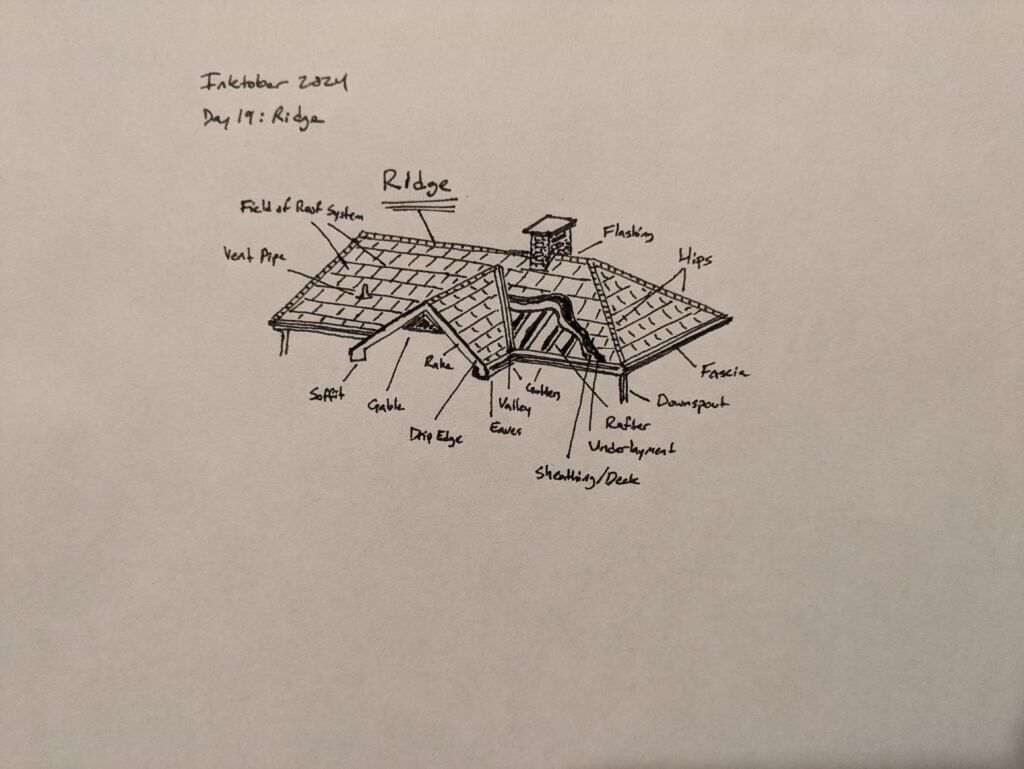 Inktober 2024
Day 19: Ridge
Ridge
Field of Roof System
Vent Pipe
Flashing
Hips
Fascia
Downspout
Rafter
Underlayment
Sheathing/Deck
Gutters
Valley
Eaves
Drip Edge
Rake
Gable
Soffit